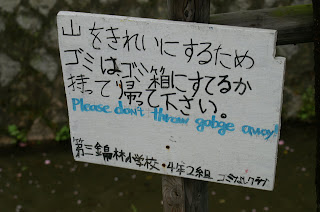 山をきれいにするため
ゴミはゴミ箱にすてるか
持って帰って下さい。
Please don't throw gabge away!
第三錦林小学校・4年2組 ゴミなしクラブ